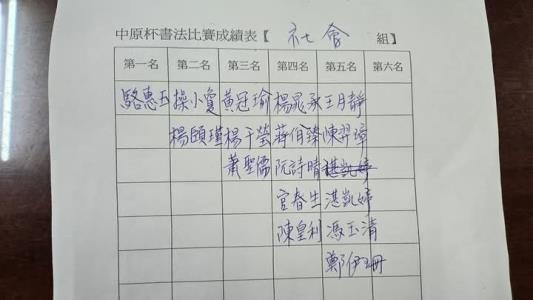 中原杯書法比賽成績表【 社會 組】
第一名 第二名 第三名 第四名 第五名 第六名
駱惠玉 操小瓊 黃冠瑜 楊晁永 王月靜
楊頤瑾 楊千瑩 蔣伯臻 陳羿璋
蕭聖儒 阮詩晴 湛凱婷
官春生 湛凱婷
陳皇利 馮玉清
鄭伊珊